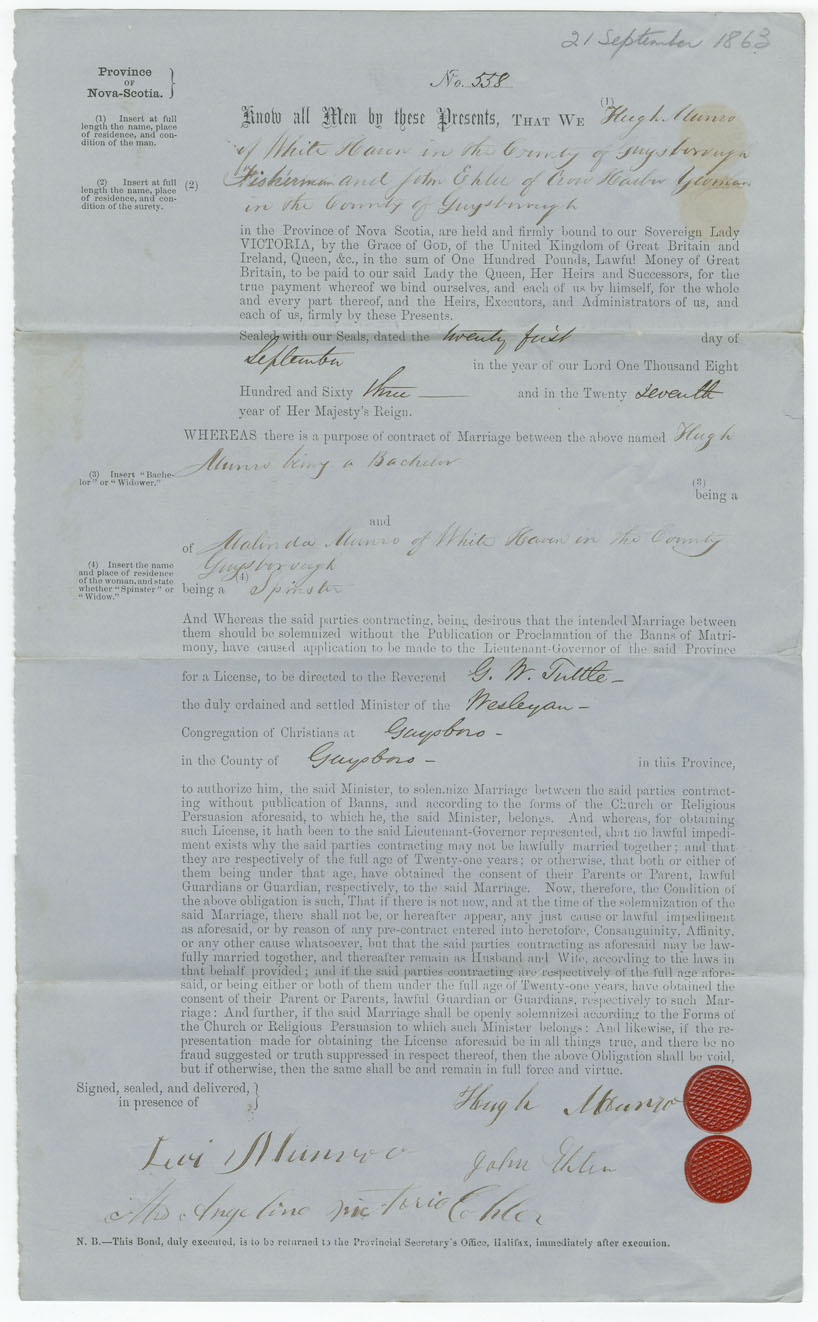 21 September 1863
Province
OF
Nova-Scotia.
No. 558
(1) Insert at full
length the name, place
of residence, and con-
dition of the man.
Know all Men by these Presents, THAT WE (1) Hugh Munro
of White Haven in the County of Guysborough
(2) Insert at full
length the name, place
of residence, and con-
dition of the surety.
(2) Fisherman and John Ehler of Crow Harbor Yeoman
in the County of Guysborough
in the Province of Nova Scotia, are held and firmly bound to our Sovereign Lady
VICTORIA, by the Grace of GOD, of the United Kingdom of Great Britain and
Ireland, Queen, &c., in the sum of One Hundred Pounds, Lawful Money of Great
Britain, to be paid to our said Lady the Queen, Her Heirs and Successors, for the
true payment whereof we bind ourselves, and each of us by himself, for the whole
and every part thereof, and the Heirs, Executors, and Administrators of us, and
each of us, firmly by these Presents.
Sealed with our Seals, dated the twenty first day of
September in the year of our Lord One Thousand Eight
Hundred and Sixty three and in the Twenty seventh
year of Her Majesty's Reign.
WHEREAS there is a purpose of contract of Marriage between the above named Hugh
Munro being a Bachelor
(3) Insert "Bache-
lor" or "Widower."
(3)
being a
and
of Malinda Munro of White Haven in the County
Guysborough
(4) Insert the name
and place of residence
of the woman, and state
whether "Spinster" or
"Widow."
being a (4) Spinster
And Whereas the said parties contracting, being desirous that the intended Marriage between
them should be solemnized without the Publication or Proclamation of the Banns of Matri-
mony, have caused application to be made to the Lieutenant-Governor of the said Province
for a License, to be directed to the Reverend G. W. Tuttle
the duly ordained and settled Minister of the Wesleyan
Congregation of Christians at Guysboro
in the County of Guysboro in this Province,
to authorize him, the said Minister, to solemnize Marriage between the said parties contract-
ing without publication of Banns, and according to the forms of the Church or Religious
Persuasion aforesaid, to which he, the said Minister, belongs. And whereas, for obtaining
such License, it hath been to the said Lieutenant-Governor represented, that no lawful impedi-
ment exists why the said parties contracting may not be lawfully married together; and that
they are respectively of the full age of Twenty-one years; or otherwise, that both or either of
them being under that age, have obtained the consent of their Parents or Parent, lawful
Guardians or Guardian, respectively, to the said Marriage. Now, therefore, the Condition of
the above obligation is such, That if there is not now, and at the time of the solemnization of the
said Marriage, there shall not be, or hereafter appear, any just cause or lawful impediment
as aforesaid, or by reason of any pre-contract entered into heretofore, Consanguinity, Affinity,
or any other cause whatsoever, but that the said parties contracting as aforesaid may be law-
fully married together, and thereafter remain as Husband and Wife, according to the laws in
that behalf provided; and if the said parties contracting are respectively of the full age afore-
said, or being either or both of them under the full age of Twenty-one years, have obtained the
consent of their Parent or Parents, lawful Guardian or Guardians, respectively to such Mar-
riage: And further, if the said Marriage shall be openly solemnized according to the Forms of
the Church or Religious Persuasion to which such Minister belongs: And likewise, if the re-
presentation made for obtaining the License aforesaid be in all things true, and there be no
fraud suggested or truth suppressed in respect thereof, then the above Obligation shall be void,
but if otherwise, then the same shall be and remain in full force and virtue.
Signed, sealed, and delivered,
in presence of
Hugh Munro
Levi Munroo
John Ehler
Mrs Angeline Victoria Ehler
N. B.—This Bond, duly executed, is to be returned to the Provincial Secretary's Office, Halifax, immediately after execution.